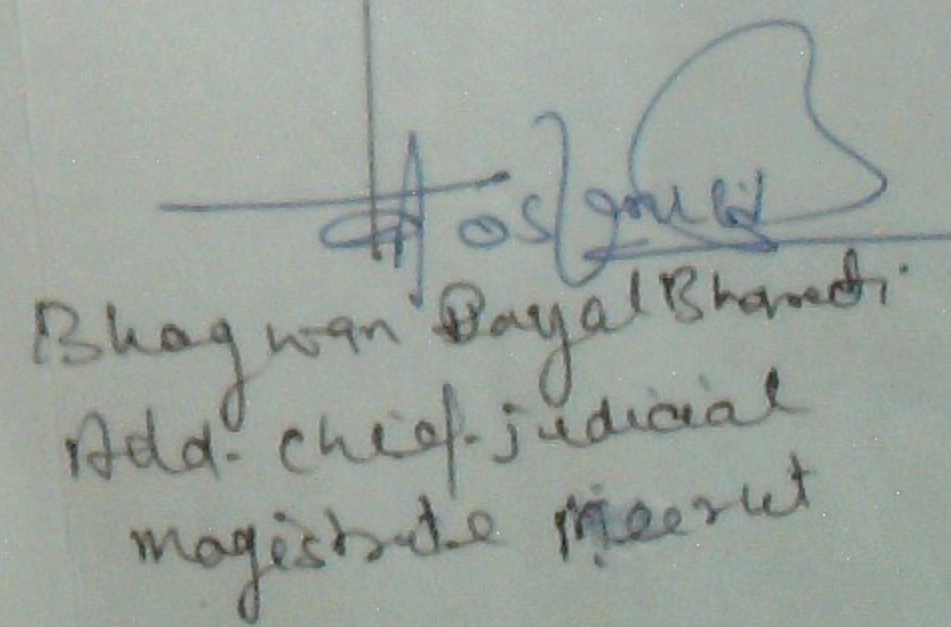 Bhagwan Dayal Bharati
Add. chief. judicial
magistrate Meerut